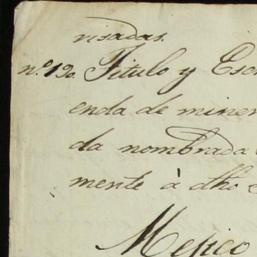 risadas.
nº. 190. Titulo y Esc
enda de miner
da nombrada
mente à dho
Mejico